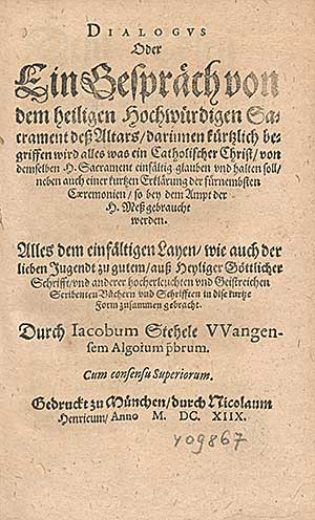 DIALOGVS
Oder
Ein Gespräch von
dem heiligen Hochwürdigen Sa-
crament deß Altars/ darinnen kürtzlich be-
griffen wird alles was ein Catholischer Christ/ von
demselben H. Sacrament einfältig glauben vnd halten soll/
neben auch einer kurtzen Erklärung der fürnembsten
Cæremonien/ so bey dem Ampt der
H. Meß gebraucht
werden.
Alles dem einfältigen Layen/ wie auch der
lieben Jugendt zu gutem/ auß Heyliger Göttlicher
Schrifft/ vnd anderer hocherleuchten vnd Geistreichen
Scribenten Büchern vnd Schrifften in dise kurtze
Form zusammen gebracht.
Durch Iacobum Stehele VVangen-
sem Algoium p̄brum.
Cum consensu Superiorum.
Gedruckt zu München/ durch Nicolaum
Henricum/ Anno M. DC. XIIX.
409867